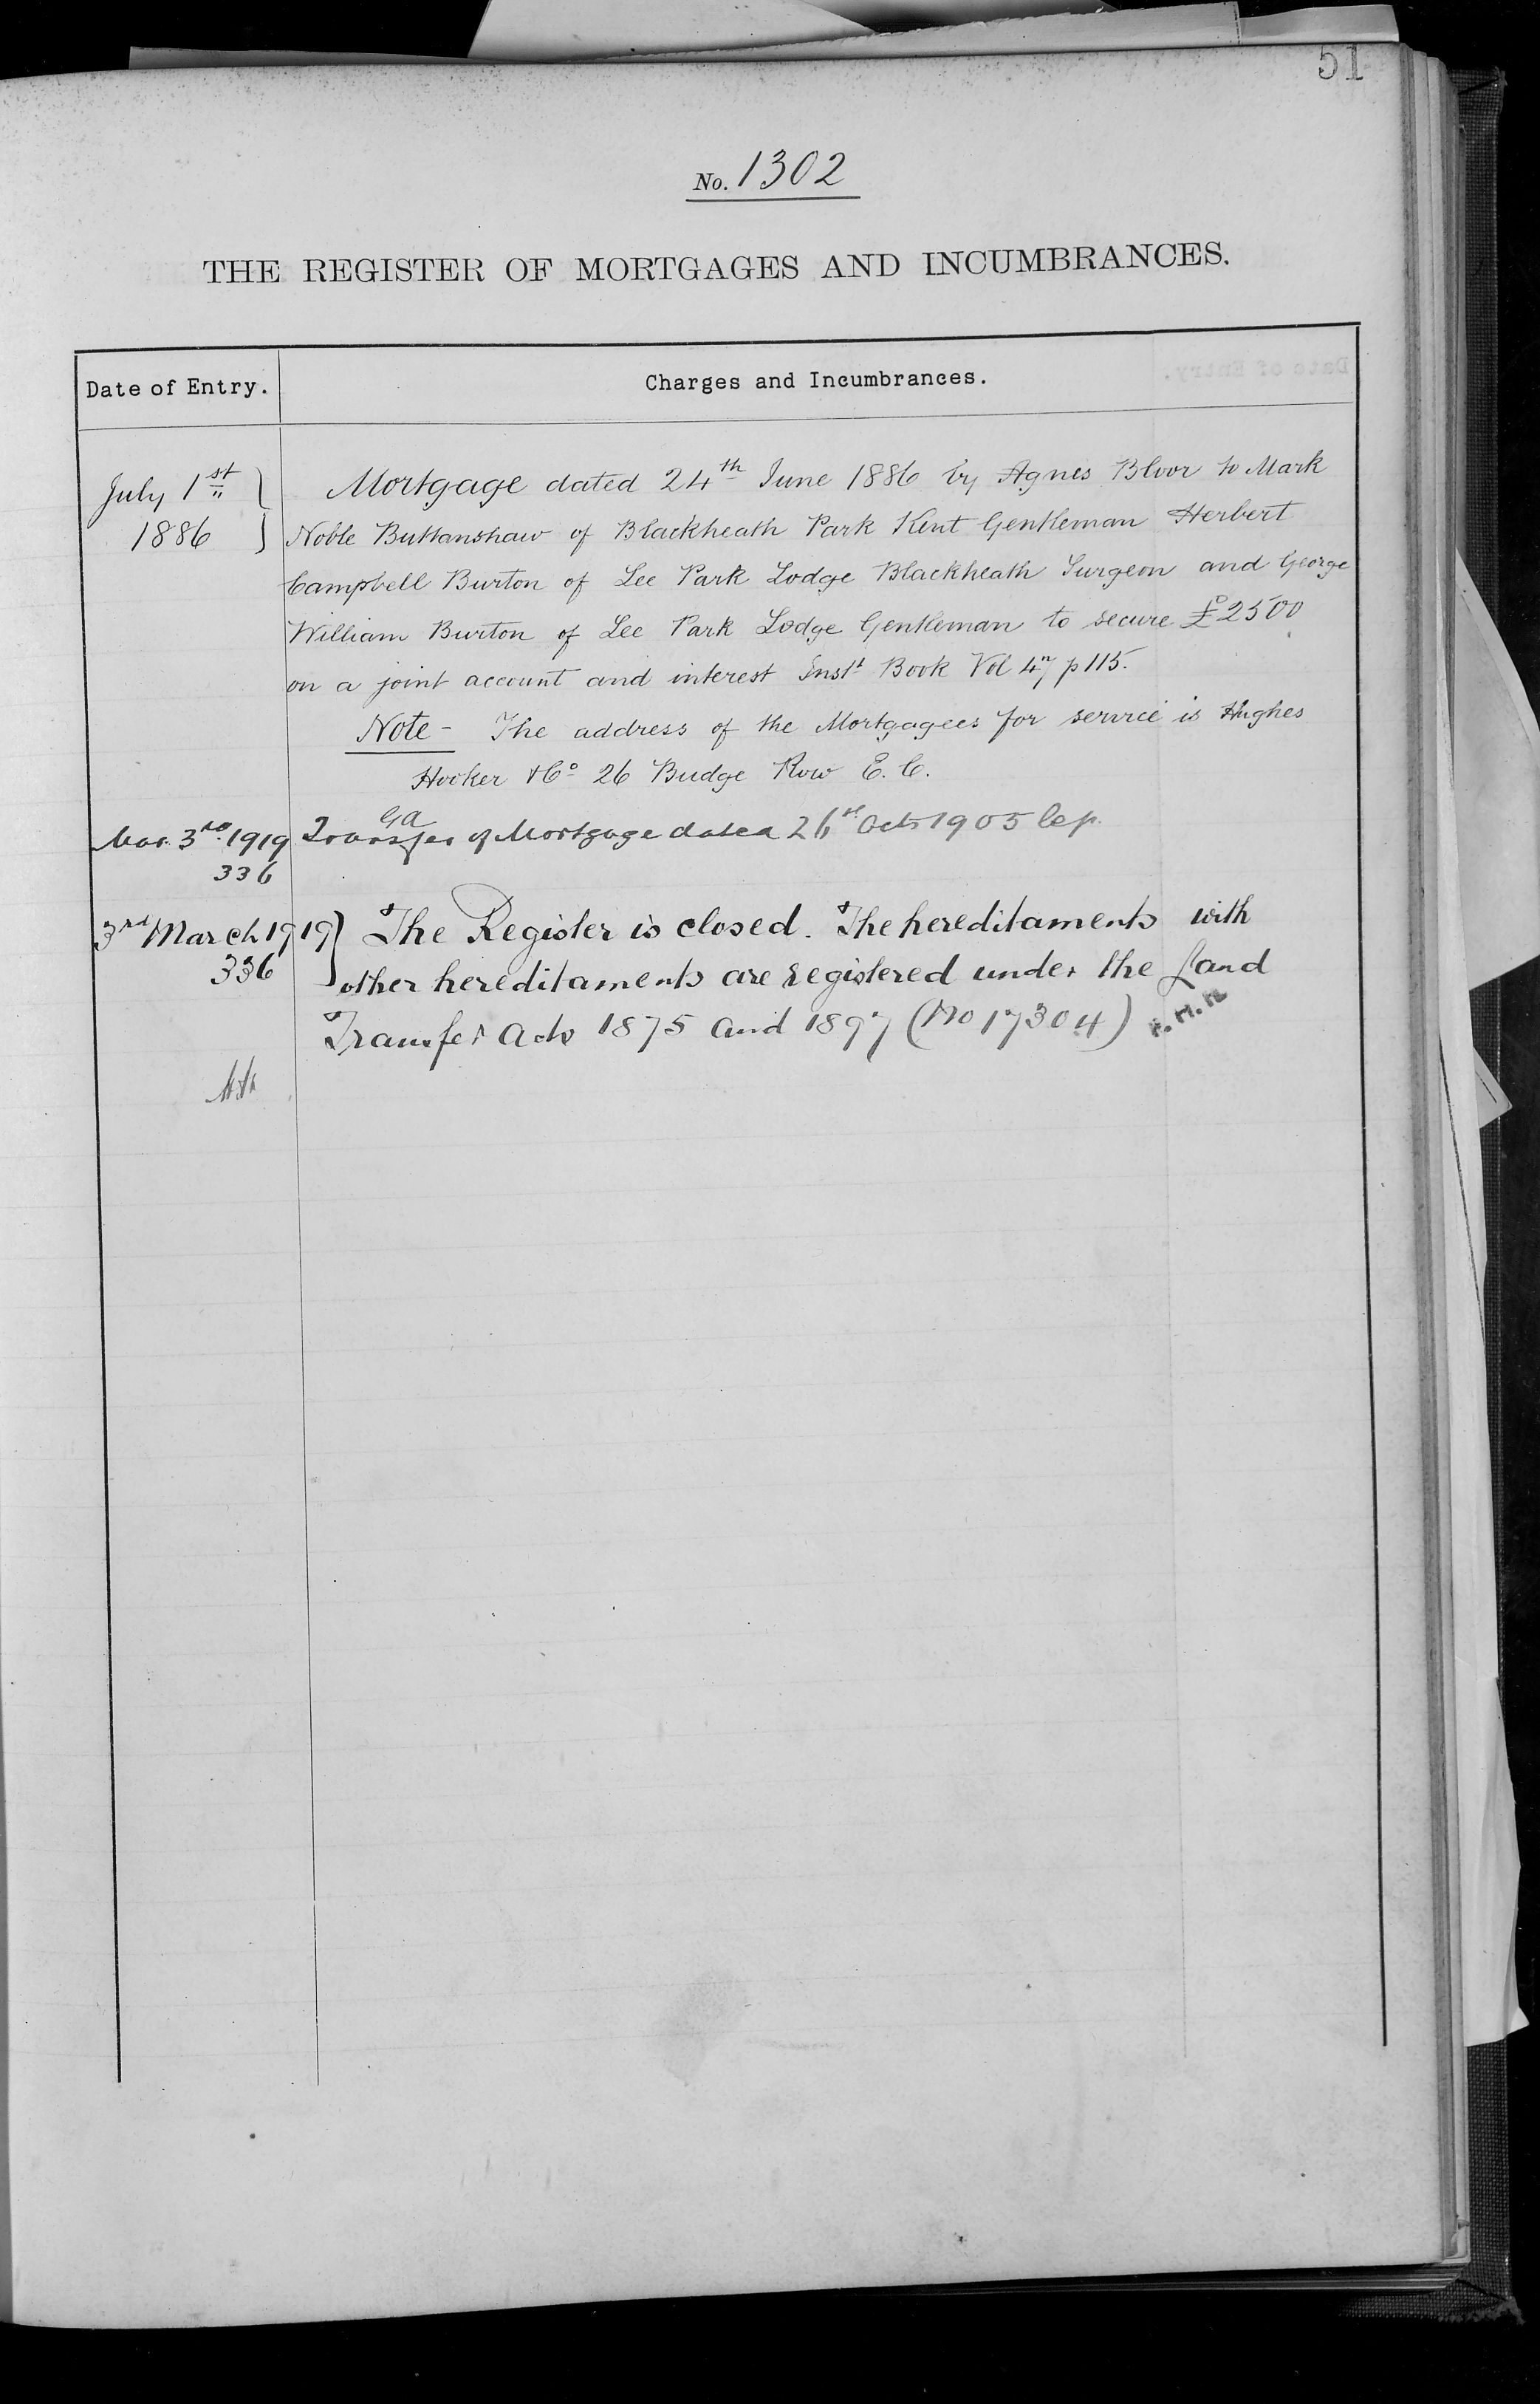 51
No. 1302
THE REGISTER OF MORTGAGES AND INCUMBRANCES.
Date of Entry.
Charges and Incumbrances.
July 1st
1886
Mortgage dated 24th June 1886 by Agnes Bloor to Mark
Noble Buttanshaw of Blackheath Park Kent Gentleman Herbert
Campbell Burton of Lee Park Lodge Blackheath Surgeon and George
William Burton of Lee Park Lodge Gentleman to secure £2500
on a joint account and interest Inst Book Vol 47 p 115.
Note - The address of the Mortgagees for service is Hughes
Hooker & Co 26 Budge Row E.C.
GA
Mar. 3rd 1919 Transfer of Mortgage dated 26th Oct 1905
336
3rd March 1919 The Register is closed. The hereditaments with
336 other hereditaments are registered under the Land
Transfer Acts 1875 and 1897 (No 17304)